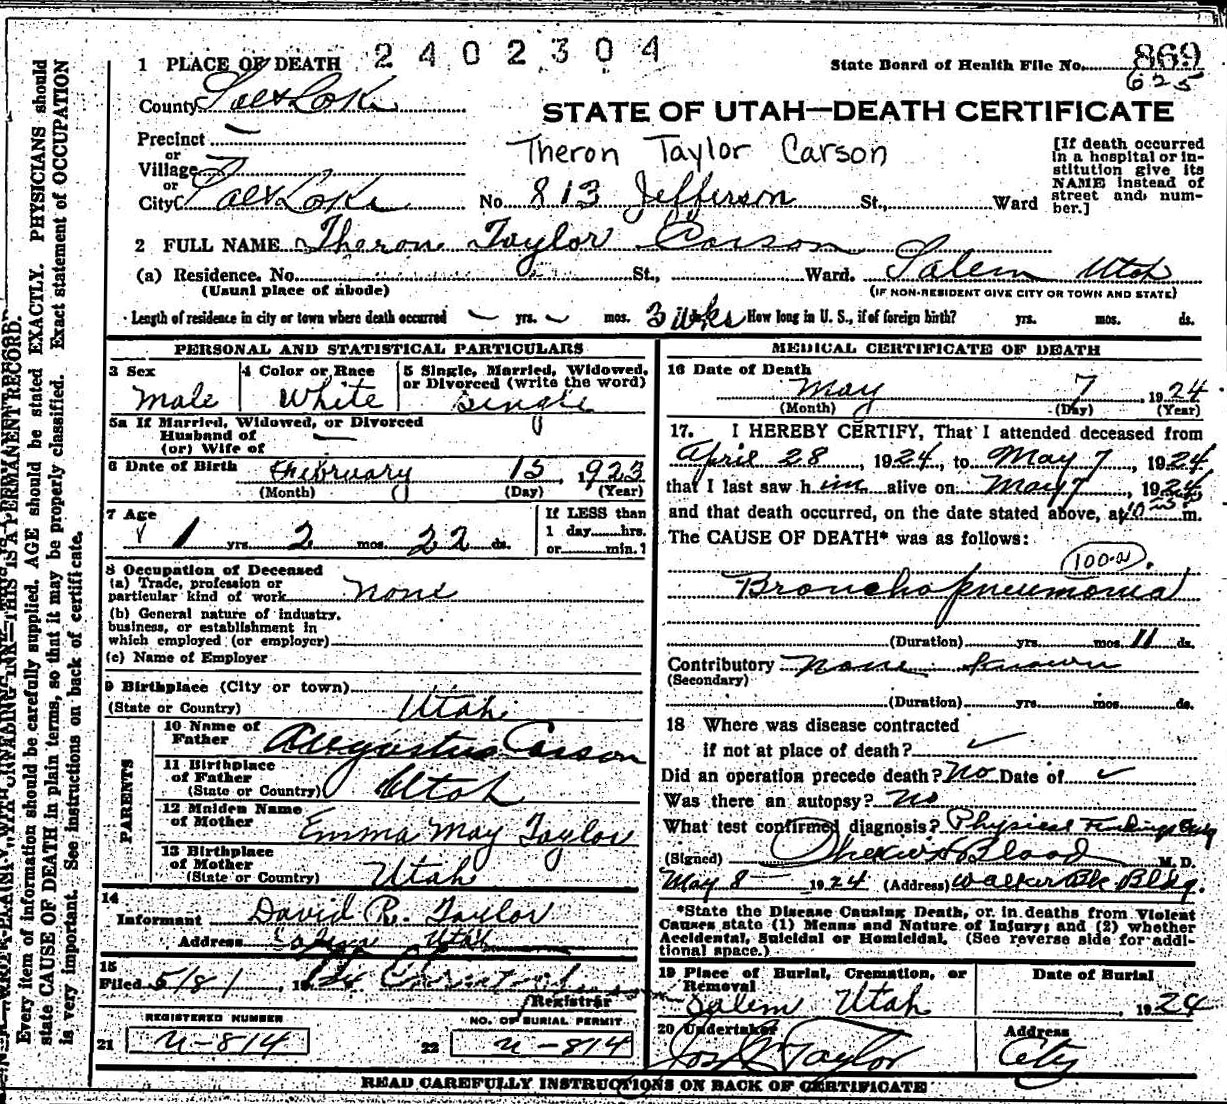 2402304
1 PLACE OF DEATH
State Board of Health File No. 869
625
County Salt Lake
STATE OF UTAH—DEATH CERTIFICATE
Precinct —
or
Village
or
City Salt Lake
Theron Taylor Carson
No. 813 Jefferson St., Ward
[If death occurred
in a hospital or in-
stitution give its
NAME instead of
street and num-
ber.]
2 FULL NAME Theron Taylor Carson
(a) Residence. No. St., Ward. Salem Utah
(Usual place of abode) (IF NON-RESIDENT GIVE CITY OR TOWN AND STATE)
Length of residence in city or town where death occurred — yrs. — mos. 3 wks ds. How long in U. S., if of foreign birth? yrs. mos. ds.
PERSONAL AND STATISTICAL PARTICULARS
3 Sex
Male
4 Color or Race
White
5 Single, Married, Widowed,
or Divorced (write the word)
Single
5a If Married, Widowed, or Divorced
Husband of
(or) Wife of —
6 Date of Birth February 15, 1923
(Month) (Day) (Year)
7 Age
1 yrs. 2 mos. 22 ds.
If LESS than
1 day hrs.
or min.?
8 Occupation of Deceased
(a) Trade, profession or
particular kind of work none
(b) General nature of industry,
business, or establishment in
which employed (or employer)
(c) Name of Employer
9 Birthplace (City or town)
(State or Country) Utah
PARENTS
10 Name of
Father Augustus Carson
11 Birthplace
of Father
(State or Country) Utah
12 Maiden Name
of Mother Emma May Taylor
13 Birthplace
of Mother
(State or Country) Utah
14
Informant David R. Taylor
Address Utah
15
Filed 5/8/ 1924
Registrar
REGISTERED NUMBER
21 U-814
NO. OF BURIAL PERMIT
22 U-814
MEDICAL CERTIFICATE OF DEATH
16 Date of Death
May 7, 1924
(Month) (Day) (Year)
17. I HEREBY CERTIFY, That I attended deceased from
April 28, 1924, to May 7, 1924
that I last saw him alive on May 7, 1924
and that death occurred, on the date stated above, at 10 m.
The CAUSE OF DEATH* was as follows:
100-a
Bronchopneumonia
(Duration) yrs. mos. 11 ds.
Contributory None known
(Secondary)
(Duration) yrs. mos. ds.
18 Where was disease contracted
if not at place of death?
Did an operation precede death? No Date of
Was there an autopsy? No
What test confirmed diagnosis? Physical Findings Only
(Signed) Blood M. D.
May 8 1924 (Address) Walker Bk. Bldg.
*State the Disease Causing Death, or, in deaths from Violent
Causes state (1) Means and Nature of Injury; and (2) whether
Accidental, Suicidal or Homicidal. (See reverse side for addi-
tional space.)
19 Place of Burial, Cremation, or
Removal
Salem Utah
Date of Burial
1924
20 Undertaker
Taylor
Address
City
READ CAREFULLY INSTRUCTIONS ON BACK OF CERTIFICATE
THIS IS A PERMANENT RECORD.
Every item of information should be carefully supplied. AGE should be stated EXACTLY. PHYSICIANS should
state CAUSE OF DEATH in plain terms, so that it may be properly classified. Exact statement of OCCUPATION
is very important. See instructions on back of certificate.